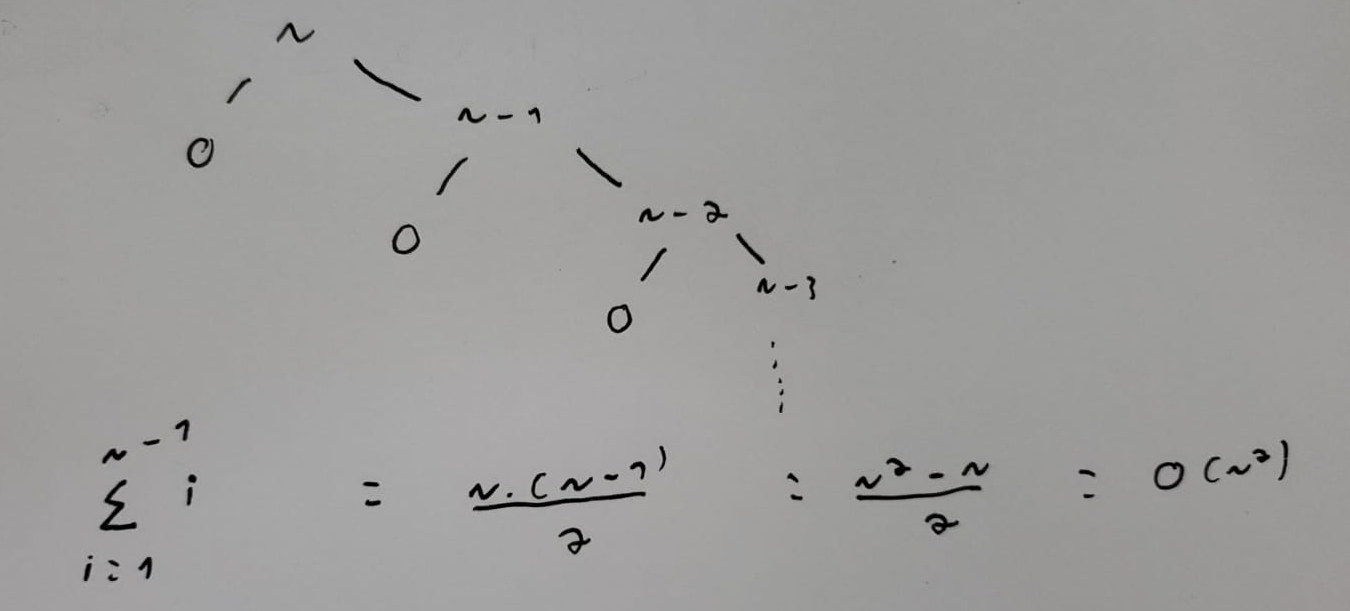 n
0 n-1
0 n-2
0 n-3
n-1
∑ i = n·(n-1)/2 = n²-n/2 = O(n²)
i=1